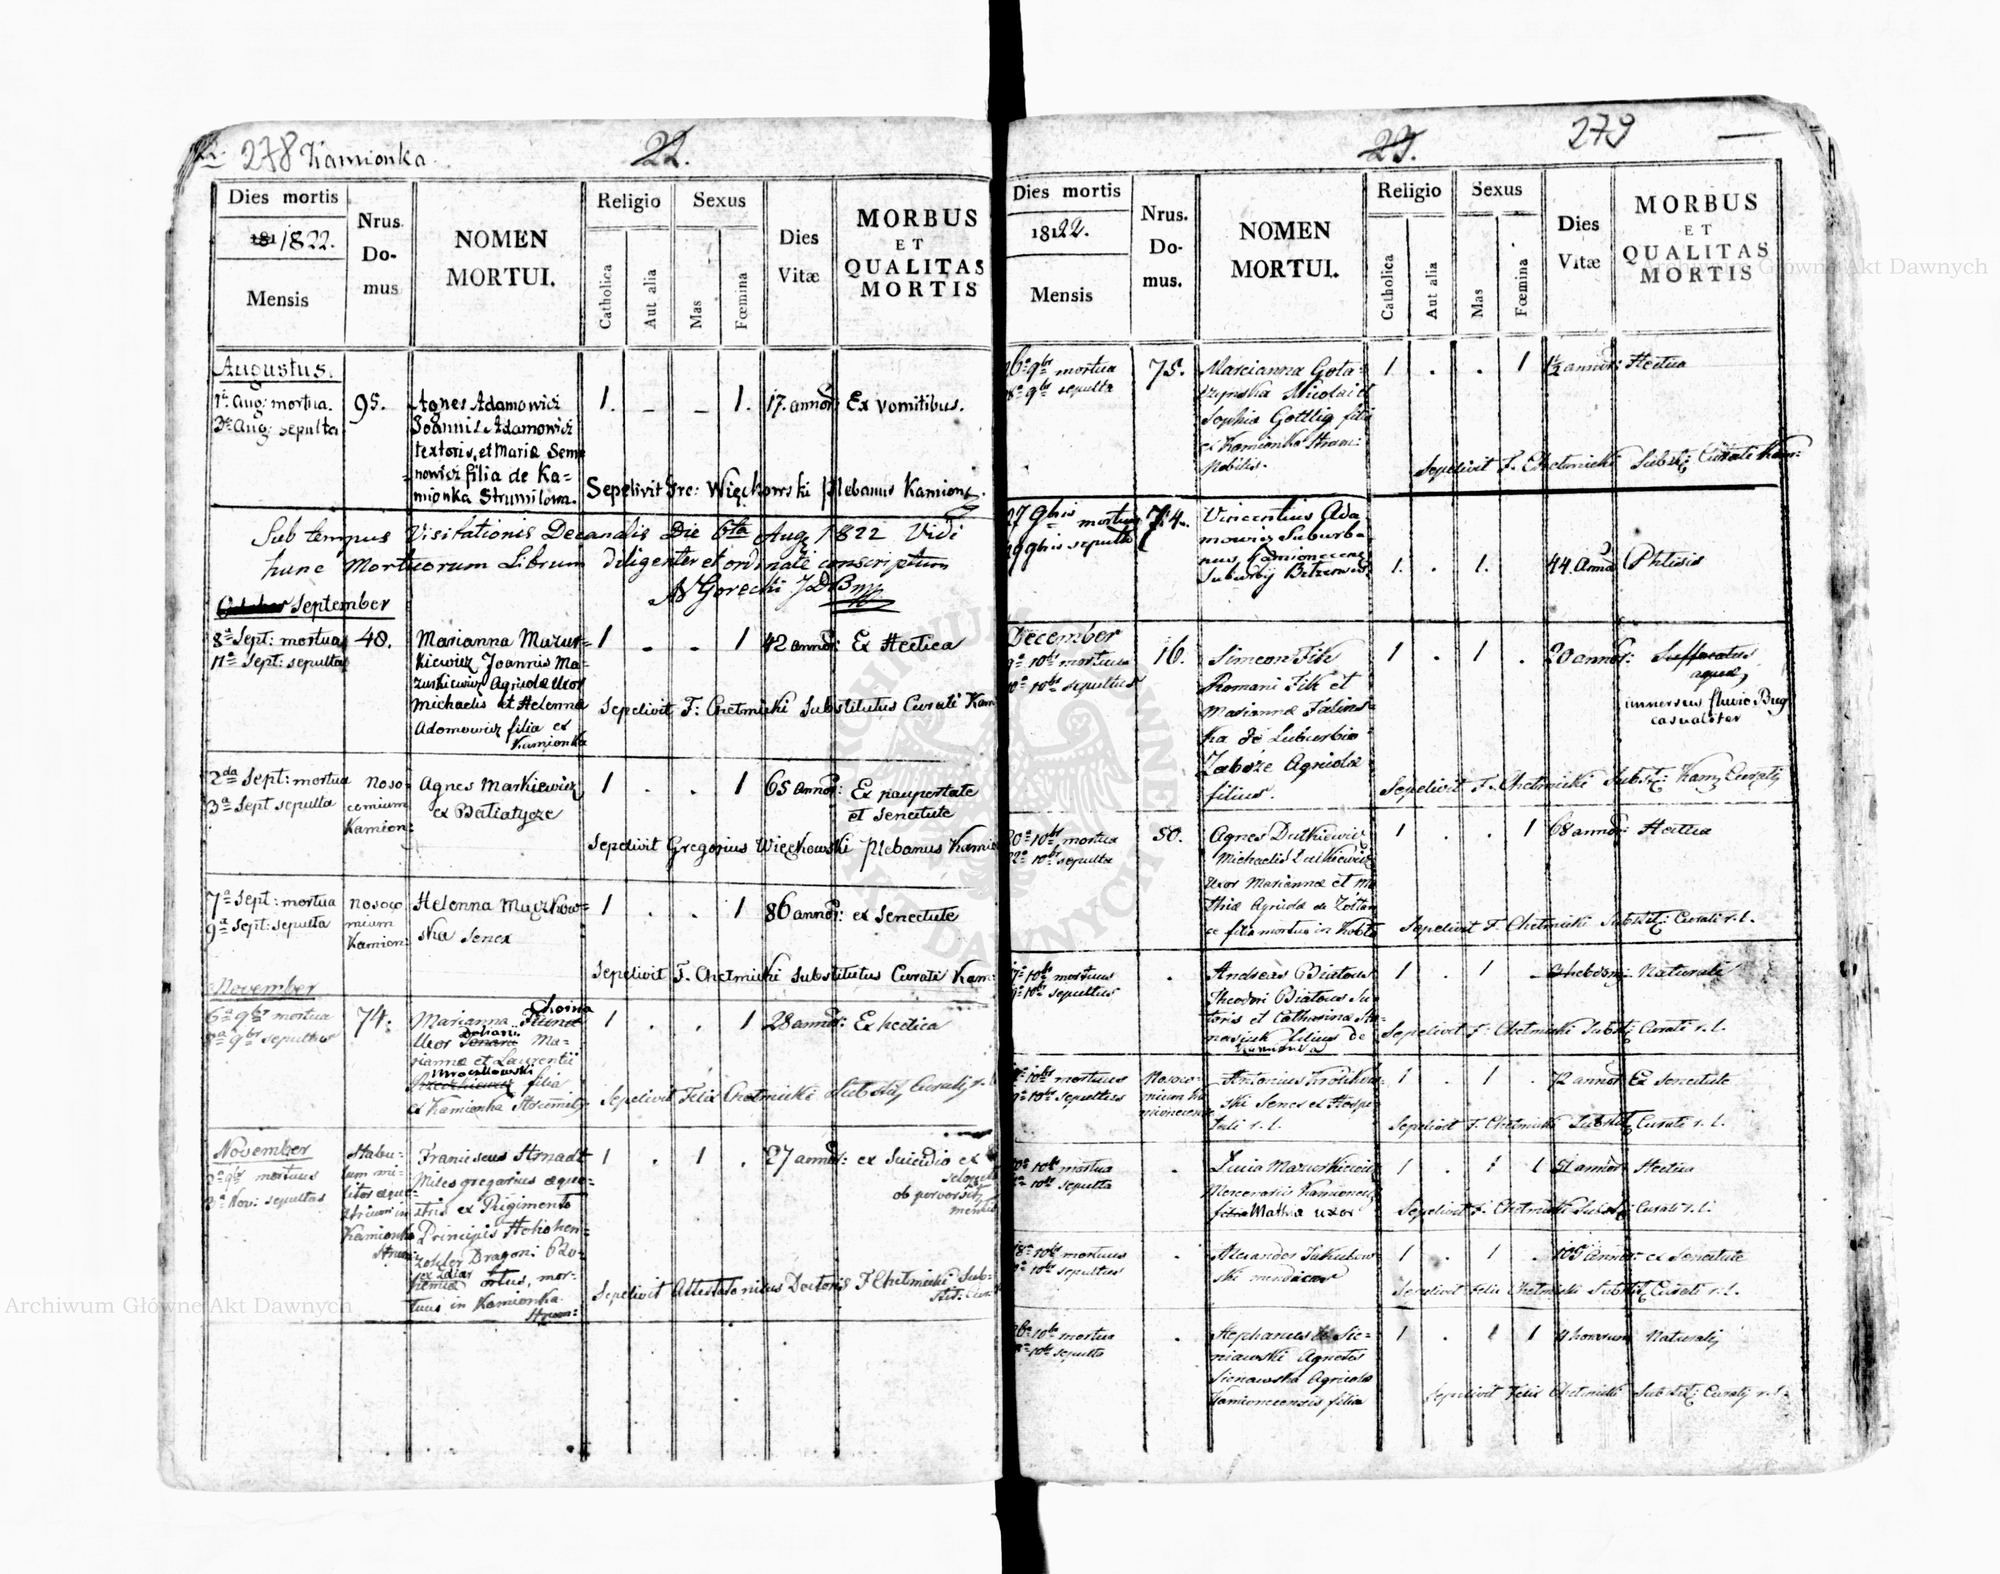 278 Kamionka.
22.
Dies mortis
181 1822.
Mensis
Nrus
Do-
mus
NOMEN
MORTUI.
Religio
Catholica
Aut alia
Sexus
Mas
Fœmina
Dies
Vitæ
MORBUS
ET
QUALITAS
MORTIS
Augustus.
1a Aug: mortua.
3a Aug: sepulta
95.
Agnes Adamowicz
Joannis Adamowicz
textoris, et Mariæ Sem
nowicz filia de Ka=
mionka Strumilowa.
1. - - 1.
17. annor:
Ex vomitibus.
Sepelivit Gre: Więckowski plebanus Kamion:
Sub tempus Visitationis Decanalis Die 6ta Aug 1822 Vidi
hunc Mortuorum Librum diligenter et ordinate conscriptum
October September
8a Sept: mortua
11a Sept: sepulta
40.
Marianna Mazur=
kiewicz Joannis Ma-
zurkiewicz Agricolæ Uxor
Michaelis et Helenna
Adamowicz filia ex
Kamionka
1 . . 1
42 annor:
Ex Hectica
Sepelivit F: Chełmicki Substitutus Curati Kam
2da Sept: mortua
3a Sept sepulta
Noso
comium
Kamion:
Agnes Markiewicz
ex Batiatycze
1 . . 1
65 annor:
Ex paupertate
et senectute
Sepelivit Gregorius Więckowski plebanus Kamio
7a Sept: mortua
9a Sept: sepulta
Nosoco
mium
Kamion:
Helenna Muczkow=
ska senex
1 . . 1
86 annor:
ex senectute
Sepelivit F. Chełmicki Substitutus Curati Kam:
November
6a 9br mortua
8a 9br sepultus
74.
Choina
Marianna
Uxor Ma=
rianna et Laurentii
Mroczkowski
filia
ex Kamionka Strumil
1 . . 1
28 annor:
Ex hectica
Sepelivit Felix Chełmicki Substit: Curati r. l.
November
2a 9br mortuus
3a Nov: sepultus
Stabu-
lum mi-
litar eque-
strium in
Kamionka
Strum:
Franciscus Arnadt
Miles gregarius eque-
stris ex Rigimento
Principis Hohohen=
zoller Dragoni
ortus, mor-
tuus in Kamionka
Strum:
1 . 1 .
27 annor:
ex suicidio ex
ob perversit
mentis
Sepelivit Attestatonitus Doctoris F Chełmicki Sub-
stit: Curati
23.
279
Dies mortis
1822.
Mensis
Nrus.
Do-
mus.
NOMEN
MORTUI.
Religio
Catholica
Aut alia
Sexus
Mas
Fœmina
Dies
Vitæ
MORBUS
ET
QUALITAS
MORTIS
6a 9br mortua
8a 9br sepulta
75.
Marianna Gola-
Nicolai et
Sophia Gottlig filia
ex Kamionka Strum:
Nobilis.
1 . . 1
1½ annor:
Hectica
Sepelivit F. Chełmicki Substit: Curati Kam:
27 9bris mortuus
29 9bris sepultus
74.
Vincentius Ada
mowicz Suburba-
nus Kamionecens
Suburbij
1. . 1.
44. Anno
Phtisis
December
9a 10br mortuus
10a 10br sepultus
16.
Simeon Fik
Romani Fik et
Marianna
ka de Suburbio
Zabóże Agricolæ
filius.
1 . 1 .
20 annor:
Suffocatus
aqua,
immersus fluvio Bug
casualiter
Sepelivit F. Chełmicki Substit: Kam: Curati
20a 10br mortua
22a 10br sepulta
50.
Agnes Dutkiewicz
Michaelis Dutkiewicz
Uxor Mariannæ et Ma
thiæ Agricolæ de Żółtań
ce filia mortua in
1 . . 1
68 annor:
Hectica
Sepelivit F. Chełmicki Substit: Curati r. l.
7a 10br mortuus
9a 10br sepultus
.
Andreas Białous
Theodori Białous Su
toris et Catharina
filius de
Kamionka
1 . 1 .
hebdom:
Naturali
Sepelivit F: Chełmicki Substit: Curati r. l.
10br mortuus
10br sepultus
Nosoco-
mium Ka
mionecens
Antonius Krolikow=
ski Senex ex Hospi
tali r. l.
1 . 1 .
72 annor
Ex senectute
Sepelivit F. Chełmicki Substit: Curati r. l.
10br mortua
10br sepulta
.
Lucia Mazurkiewicz
Mercenarii Kamionec
filia Mathia uxor
1 . 1 1
51 annor
Hectica
Sepelivit F. Chełmicki Substit: Curati r. l.
18a 10br mortuus
10br sepultus
.
Alexander Jakubow
ski mendicus
1 . 1 .
105 annor:
ex senectute
Sepelivit Felix Chełmicki Substit: Curati r. l.
26a 10br mortua
10br sepulta
.
Stephanus Sie=
niawski Agnetes
Sieniawska Agricola
Kamionecensis filia
1 . 1 1
4 horarum
Naturali
Sepelivit Felix Chełmicki Substit: Curati r. l.
ARCHIWUM GŁÓWNE AKT DAWNYCH
Archiwum Główne Akt Dawnych
Archiwum Główne Akt Dawnych